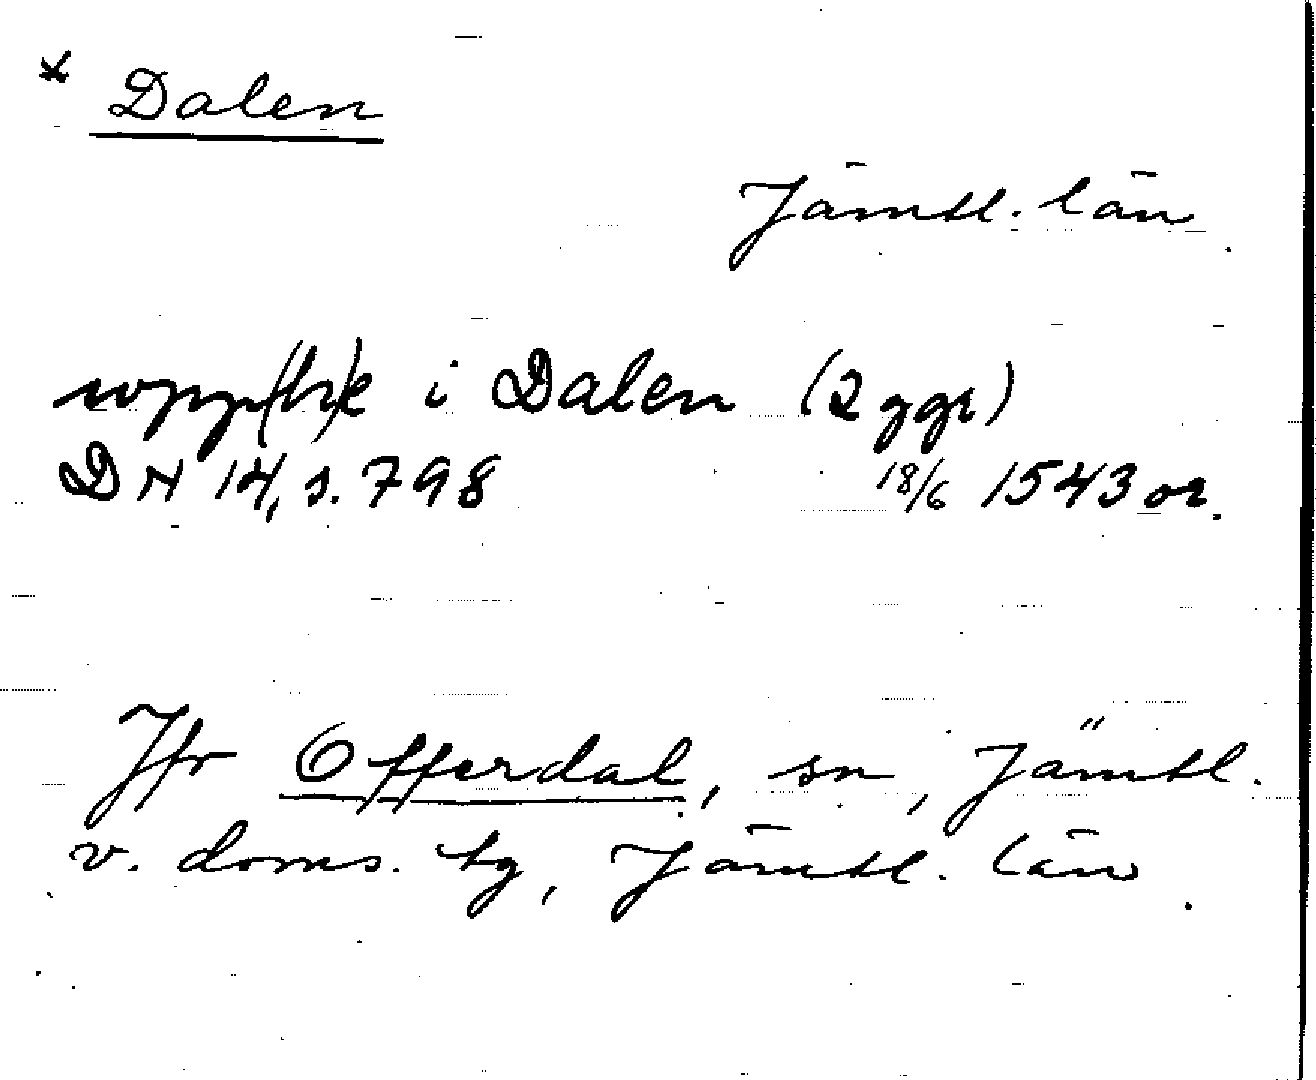 * Dalen
Jämtl. län
wpp(h)e i Dalen (2 ggr)
DN 14, s. 798 18/6 1543 or.
Jfr Offerdal, sn, Jämtl.
v. doms. tg, Jämtl. län